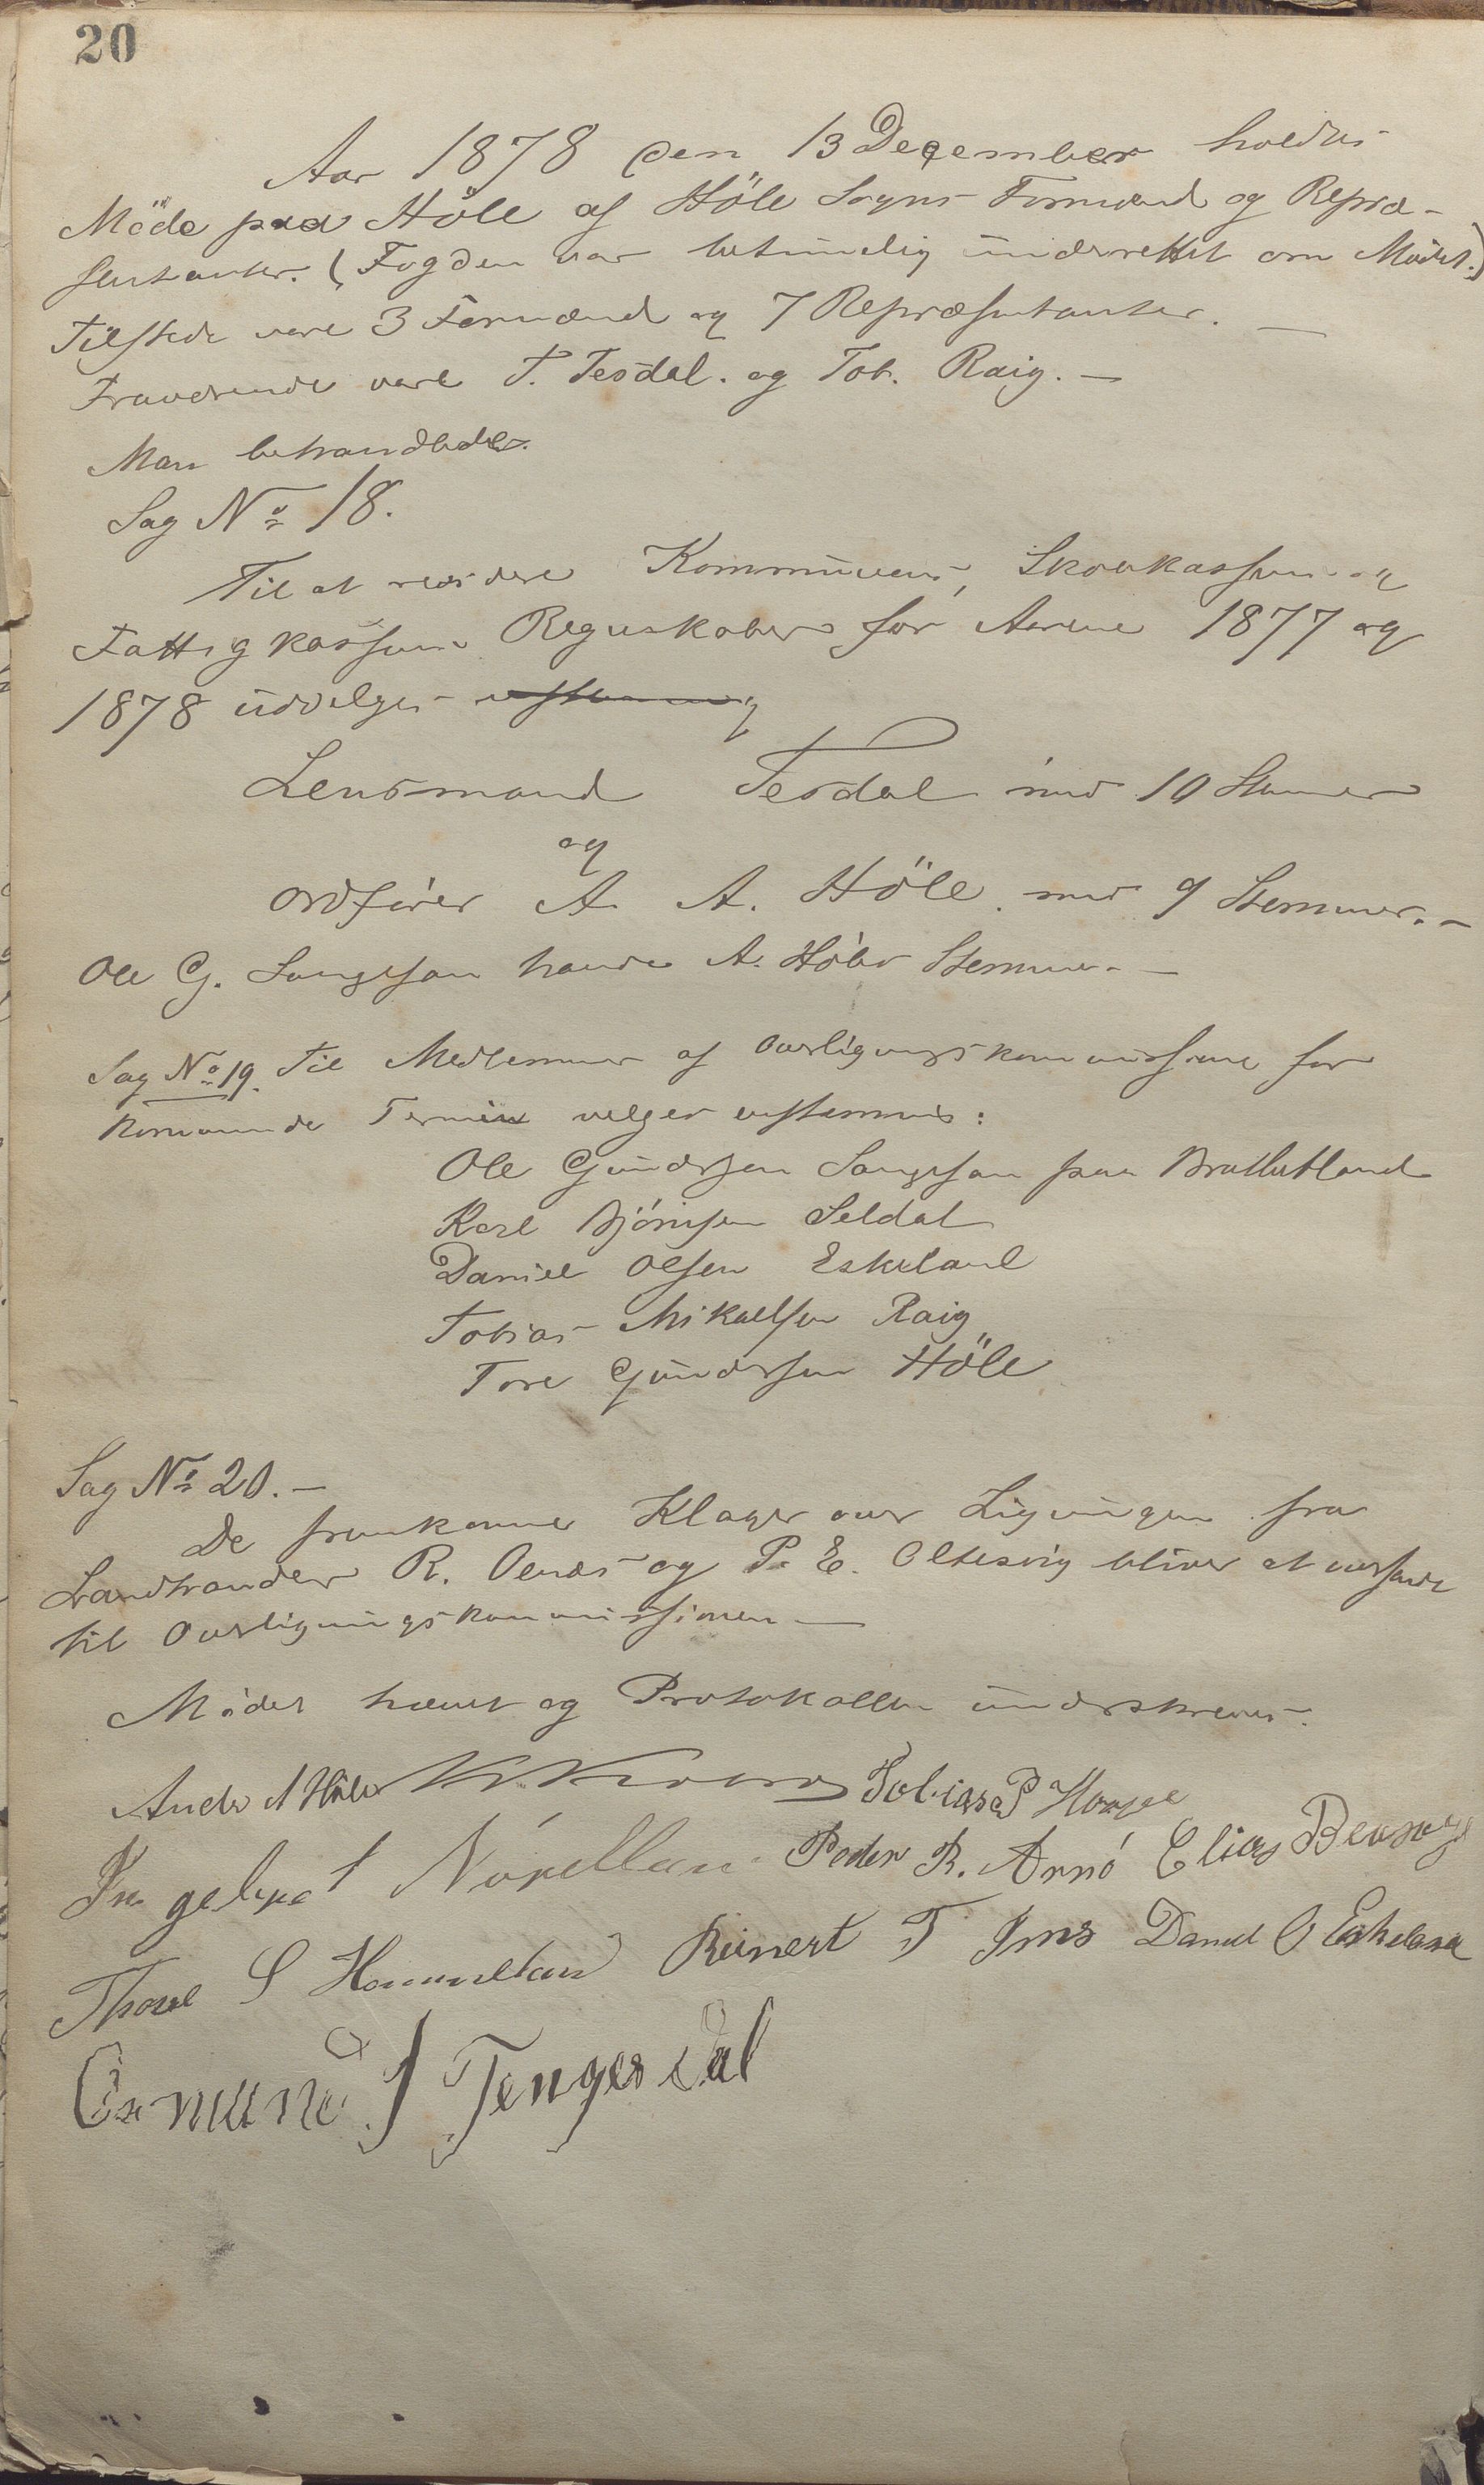 20
Aar 1878 den 13 December holdtes
Möde paa Höle af Höle Sogns Formænd og Repræ-
sentanter. (Fogden var betimelig underrettet om Mödet.)
Tilstede vare 3 Formænd og 7 Repræsentanter. —
Fraværende vare T. Tesdal. og Tob. Raig. —
Man behandlede
Sag No 18.
Til at revidere Kommunens, Skolekassens og
Fattigkassens Regnskaber for Aarene 1877 og
1878 udvalges
Lensmand Tesdal med 10 Stemmer
og
Ordförer A. A. Höle med 9 Stemmer. —
Ole G. Sangesan havde A. Höles Stemme. —
Sag No 19. Til Medlemmer af Overligningskommissionen for
kommende Termin velges enstemmig:
Ole Gundersen Sangesan paa Brattetland
Karl Björnsen Seldal
Daniel Olsen Eskeland
Tobias Mikaelsen Raig
Tore Gundersen Höle
Sag No 20. —
De fremkomne Klager over Ligningen fra
Landhandler R. Oenæs og P. E. Oltesvig bliver at oversende
til Overligningskommissionen —
Mödet hævet og Protokollen underskreven.
Anders A Höle Tobias P Hogge
Ingebret Nörelland Peder R. Arnö Elias
Thore S Hommeland Reinert T Ims Daniel O Eskeland
Osmund J Tengesdal